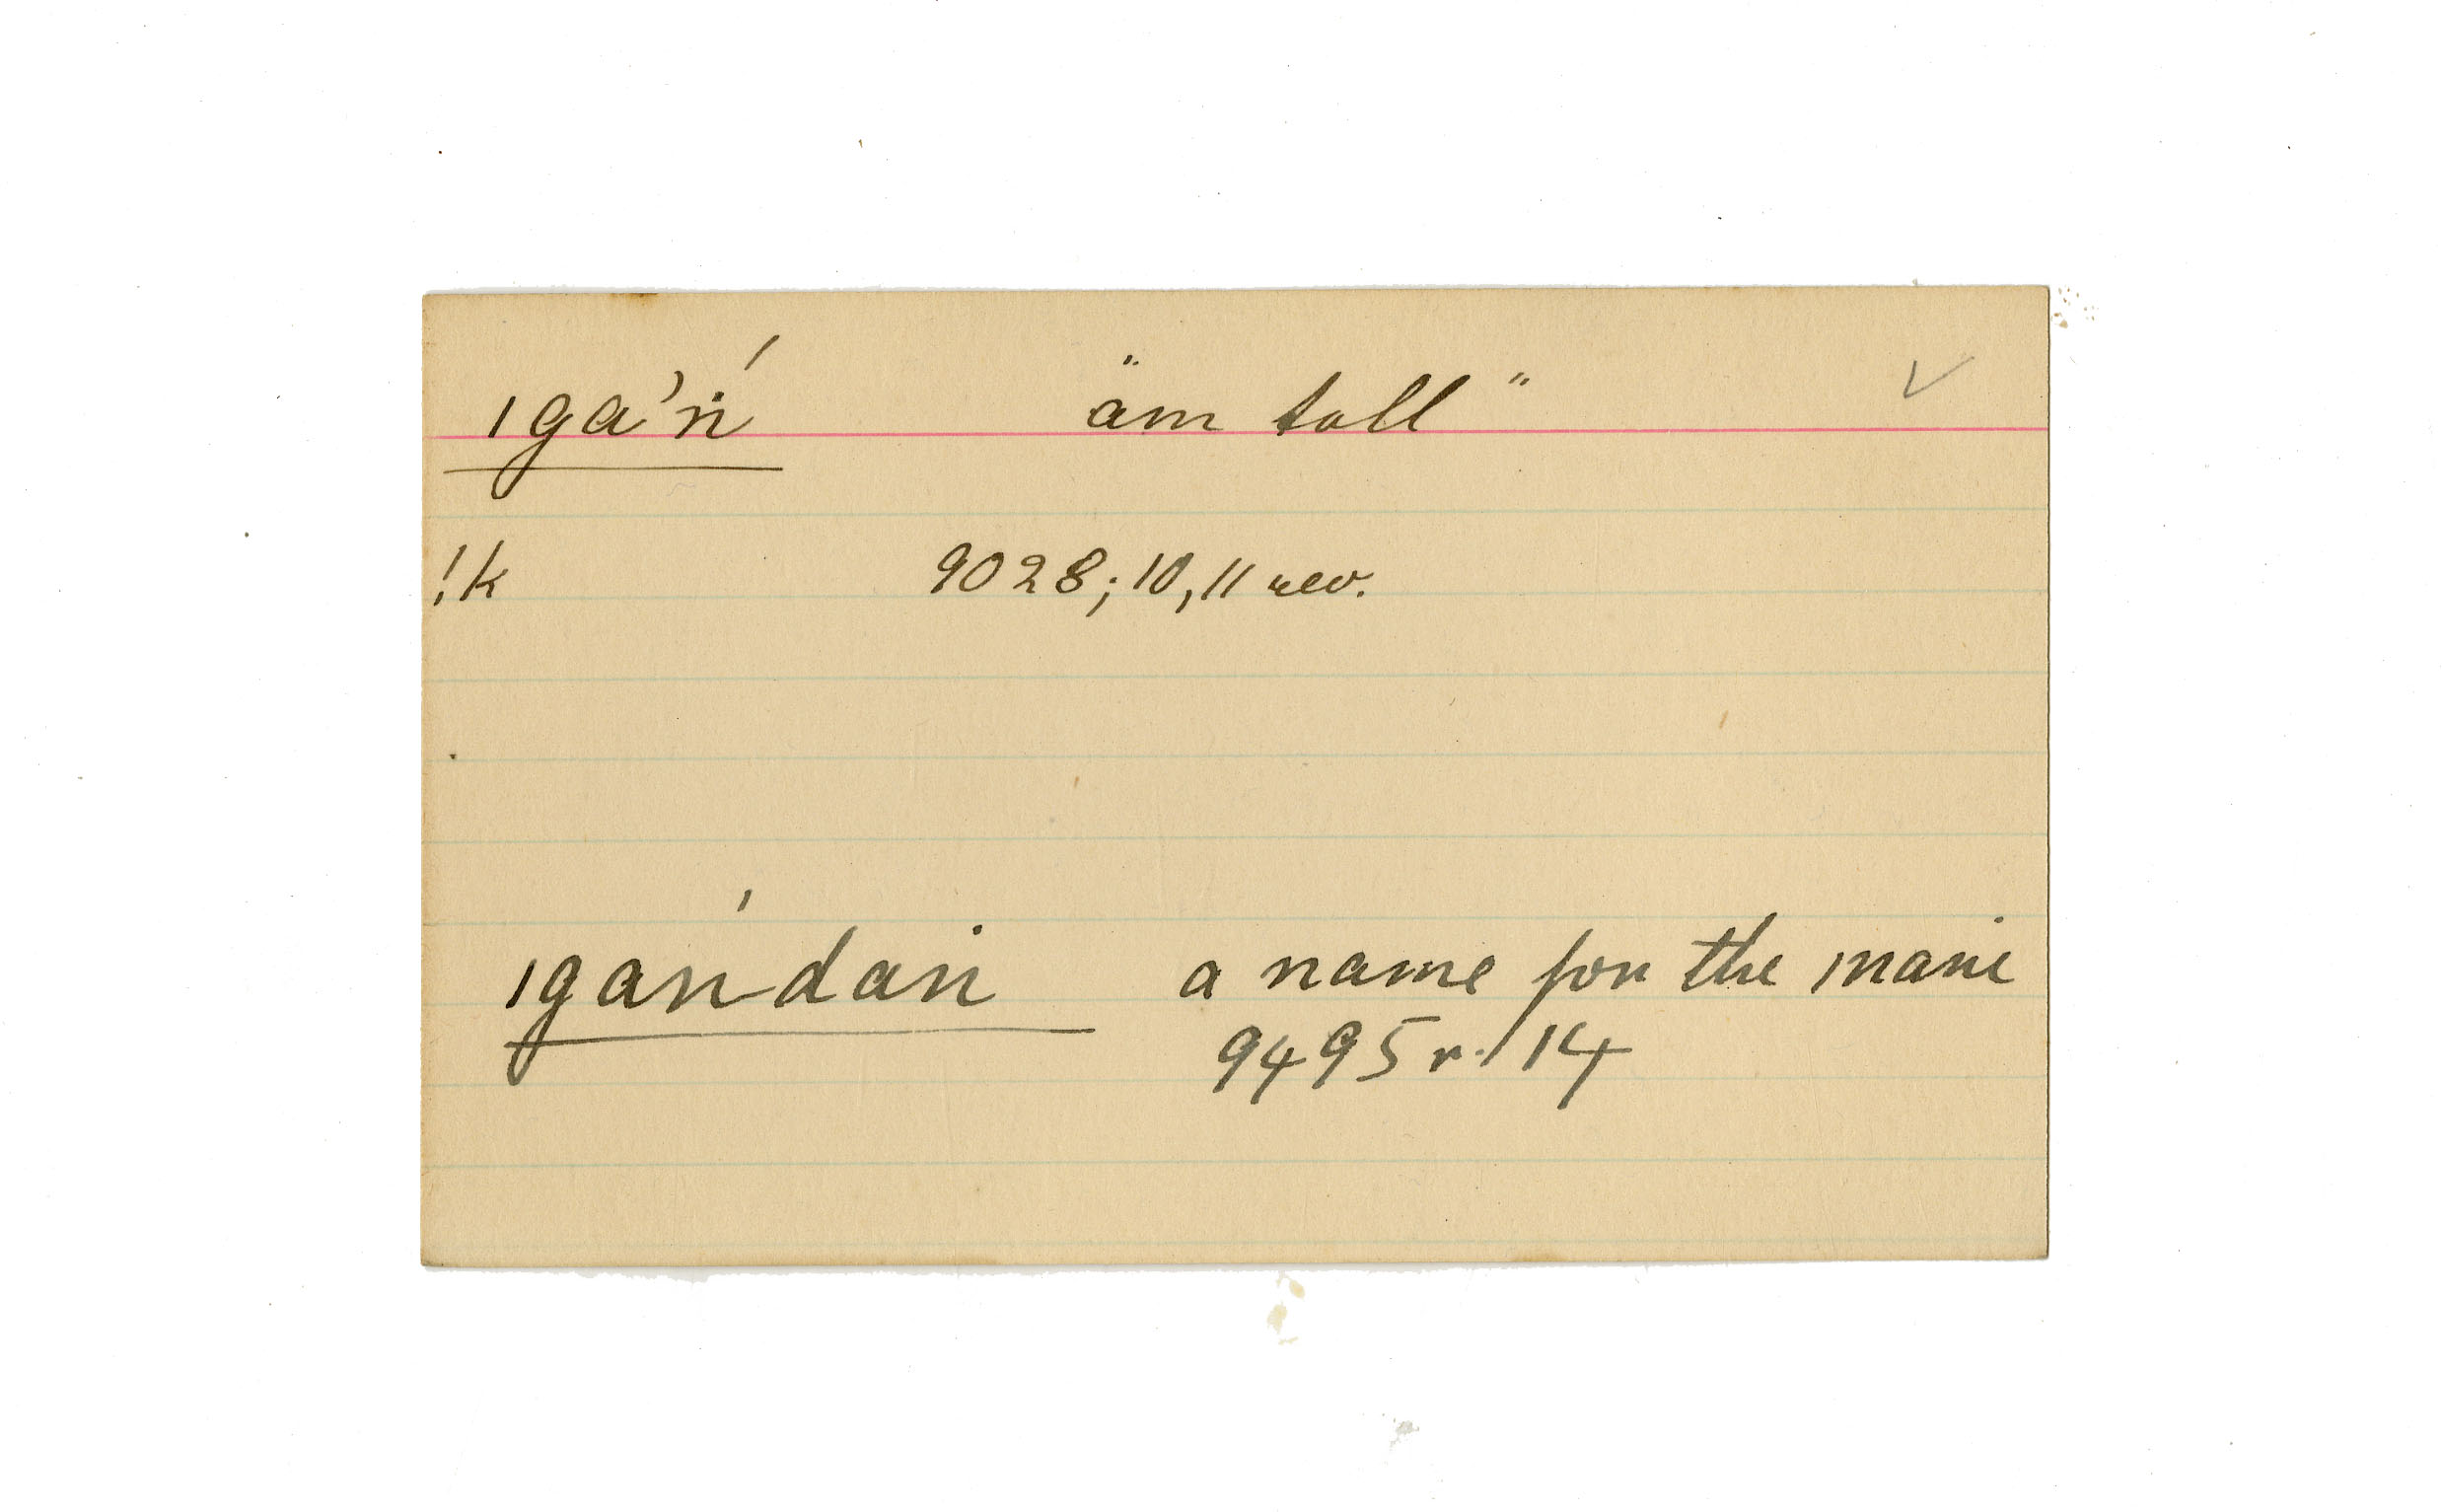 iga'ṅ́ "am tall" ✓
!k 9028; 10, 11 rev.
igań-daṅ a name for the
9495 r. / 14